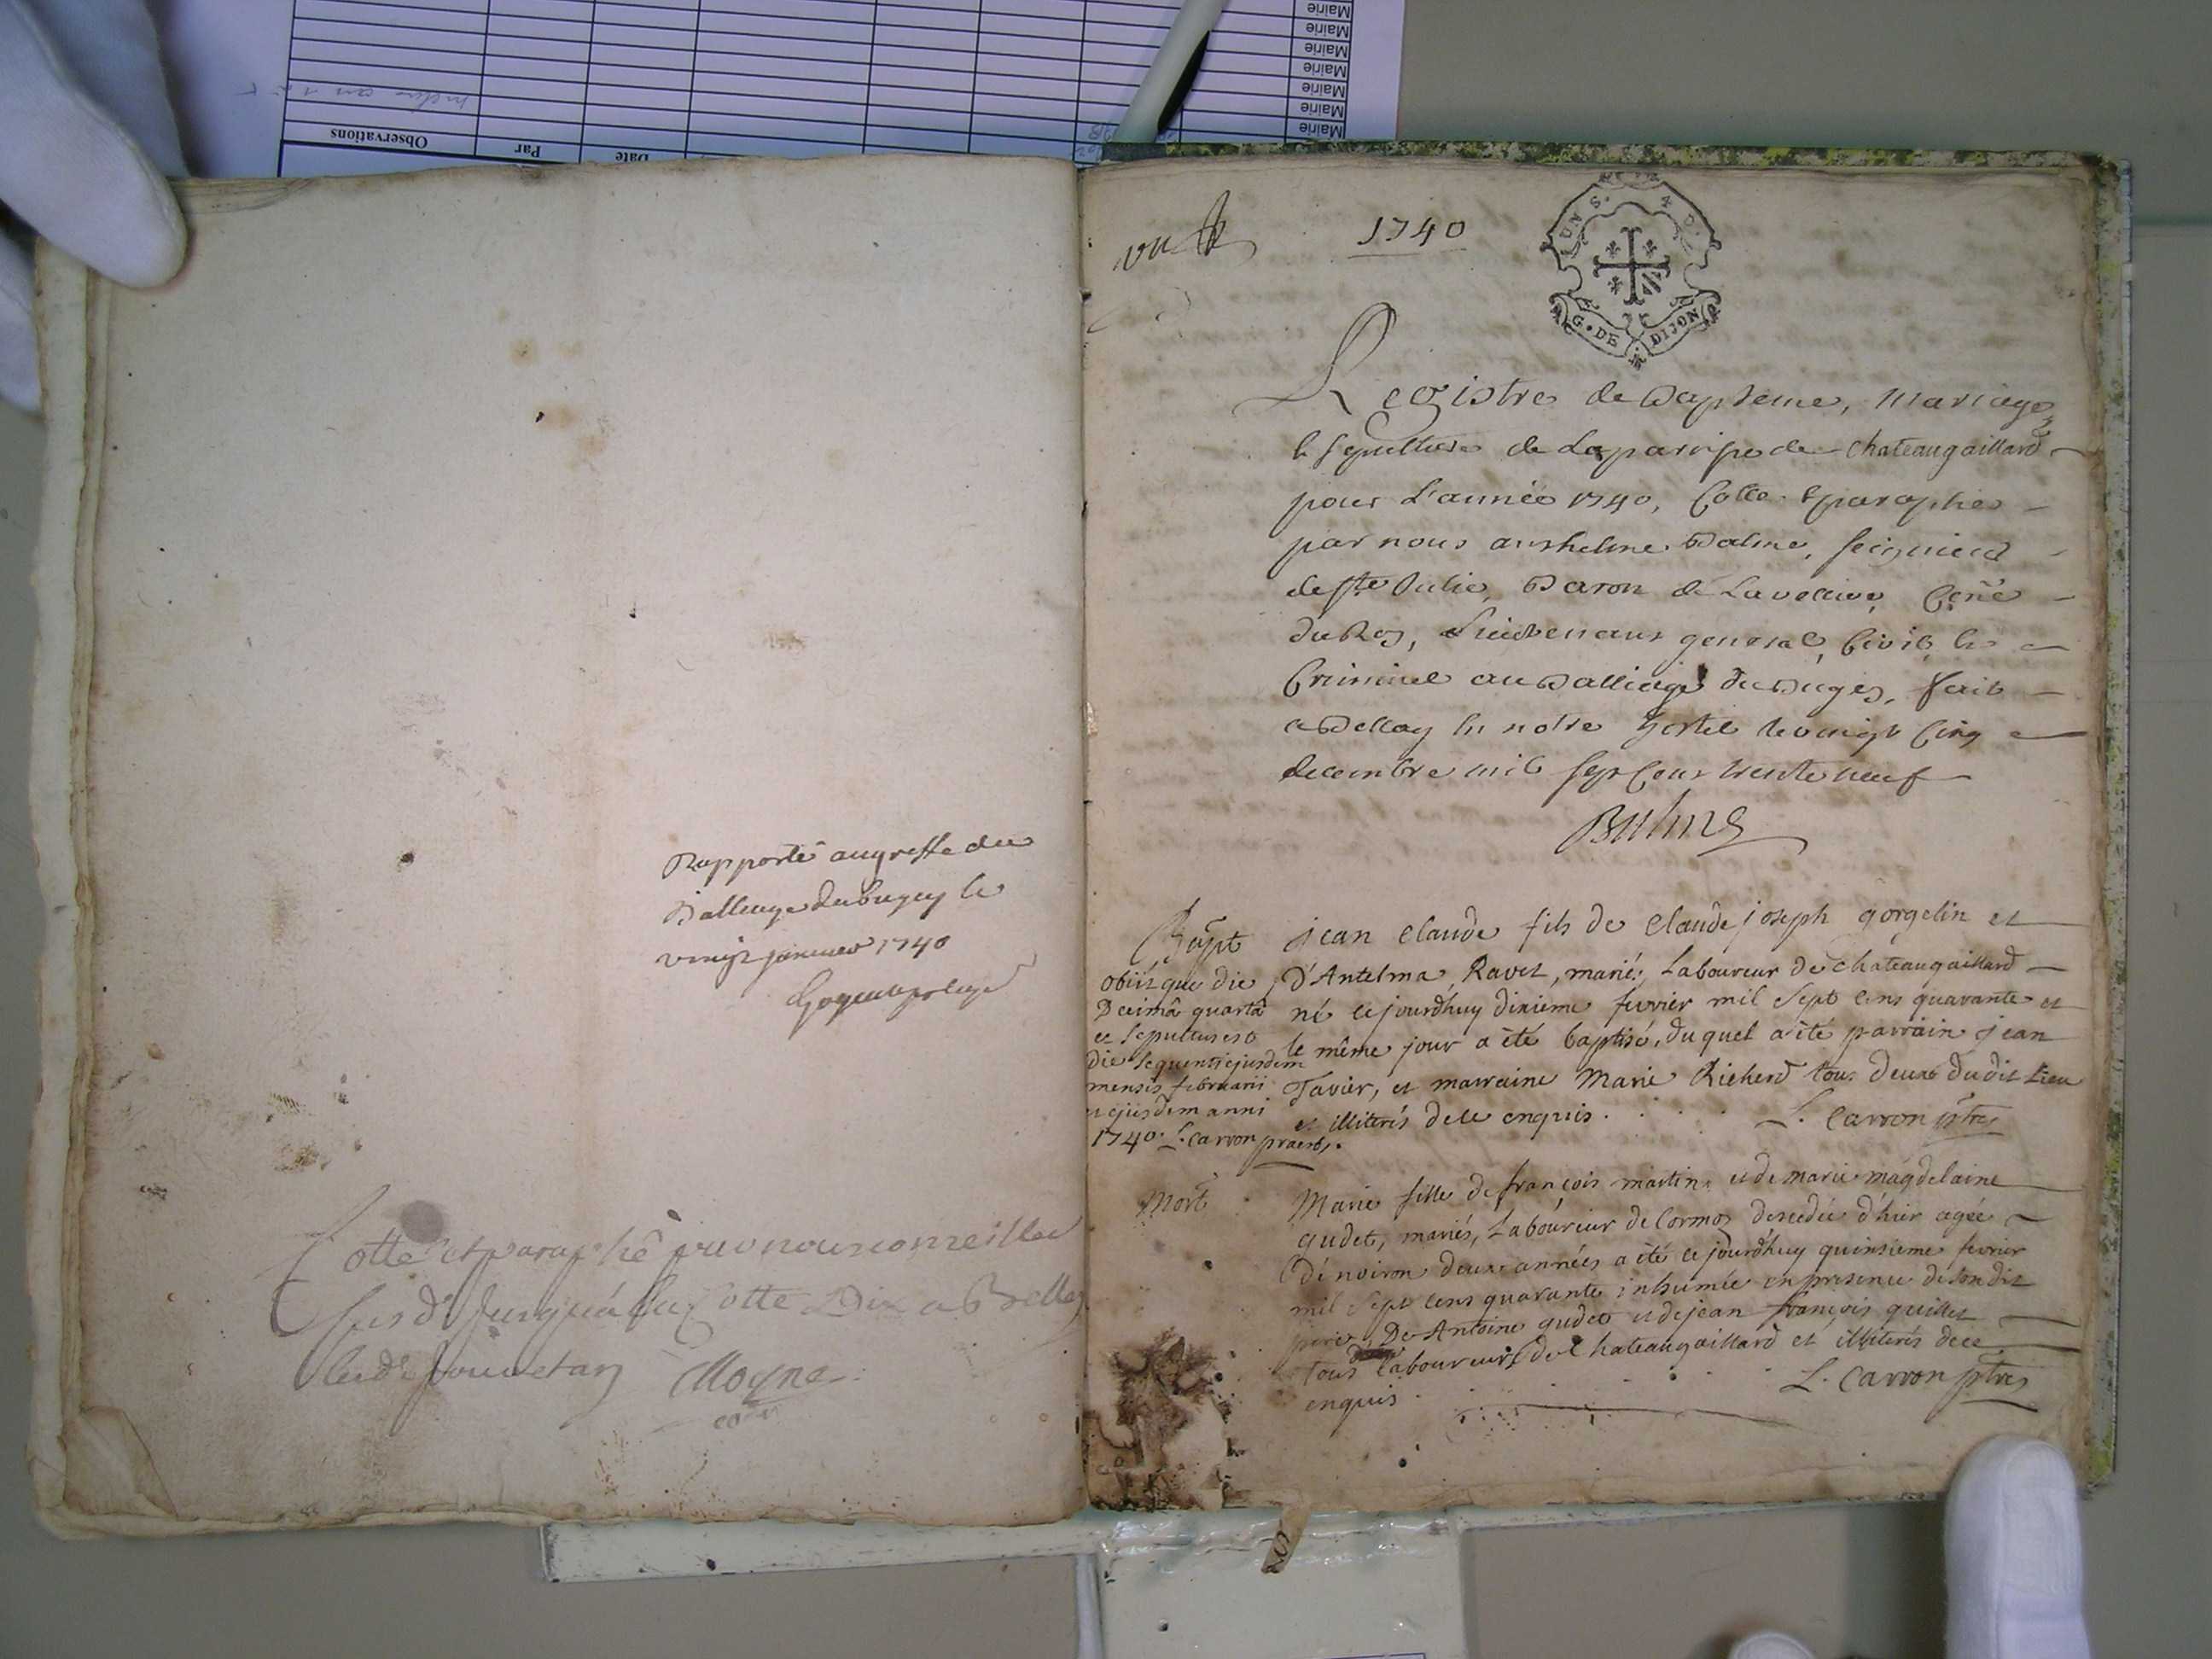 Mairie
Mairie
Mairie
Mairie
Mairie
Mairie
Mairie
Observations
Par
Date
Rapporté au greffe du
Balliage du bugey le
vingt janvier 1740
Cotté et paraphé par nous conseiller
susdt jusqu'à la Cotte Dix a Belley
lesdt jour et an Moyne
une
1740
UN S. 4 D.
G. DE DIJON
Registre de Bapteme, mariage
et sepulture de La paroisse de chateaugaillard
pour L'année 1740, Cotté et paraphé
par nous anthelme Balme, seigneur
de ste Julie, Baron de Cone
du Roy, Lieutenant general, Civil et
Criminel au Balliage du Bugey, fait
a Belley en notre hostel le vingt Cinq
decembre mil sept Cent trente neuf
Balme
Bapt
obiitque die
Decimâ quartâ
et sepultus est
die sequenti ejusdem
mensis februarii
et ejusdem anni
1740. L. Carron praesb.
jean claude fils de Claude joseph gorgelin et
D'Antelma Ravet, mariés, Laboureur de chateaugaillard
né ce jourdhuy dixieme fevrier mil sept cens quarante et
le même jour a été baptisé, duquel a été parrain jean
Tavier, et marraine Marie Richerd tous deux dudit Lieu
et illiterés de ce enquis. L. Carron ptre
Mort
Marie fille de françois martin et de marie magdelaine
gudet, mariés, Laboureur de Cormoz decedée d'hier agée
D'environ deux années a été ce jourdhuy quinsieme fevrier
mil sept cens quarante inhumée en presence de son dit
pere, De Antoine gudet et de jean françois quillet
tous laboureurs de Chateaugaillard et illiterés de ce
enquis L. Carron ptre